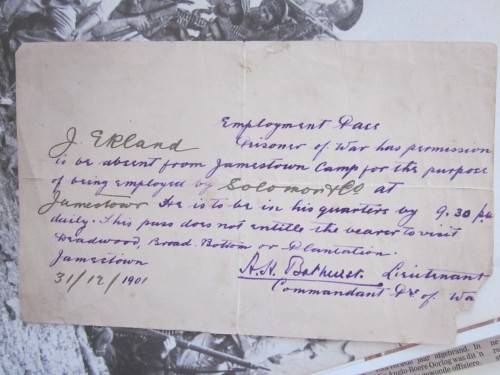 Employment Pass
J. Ekland Prisoner of War has permission
to be absent from Jamestown Camp for the purpose
of being employed by Solomon & Co at
Jamestown He is to be in his quarters by 9.30 p.m.
daily. This pass does not entitle the bearer to visit
Deadwood, Broad Bottom or Plantation.
Jamestown
31/12/1901
A.H. Bathurst. Lieutenant
Commandant Prs. of Wa
jaar afgebrand. In
Anglo-Boere Oorlog was di'n
gewonde offisiere.